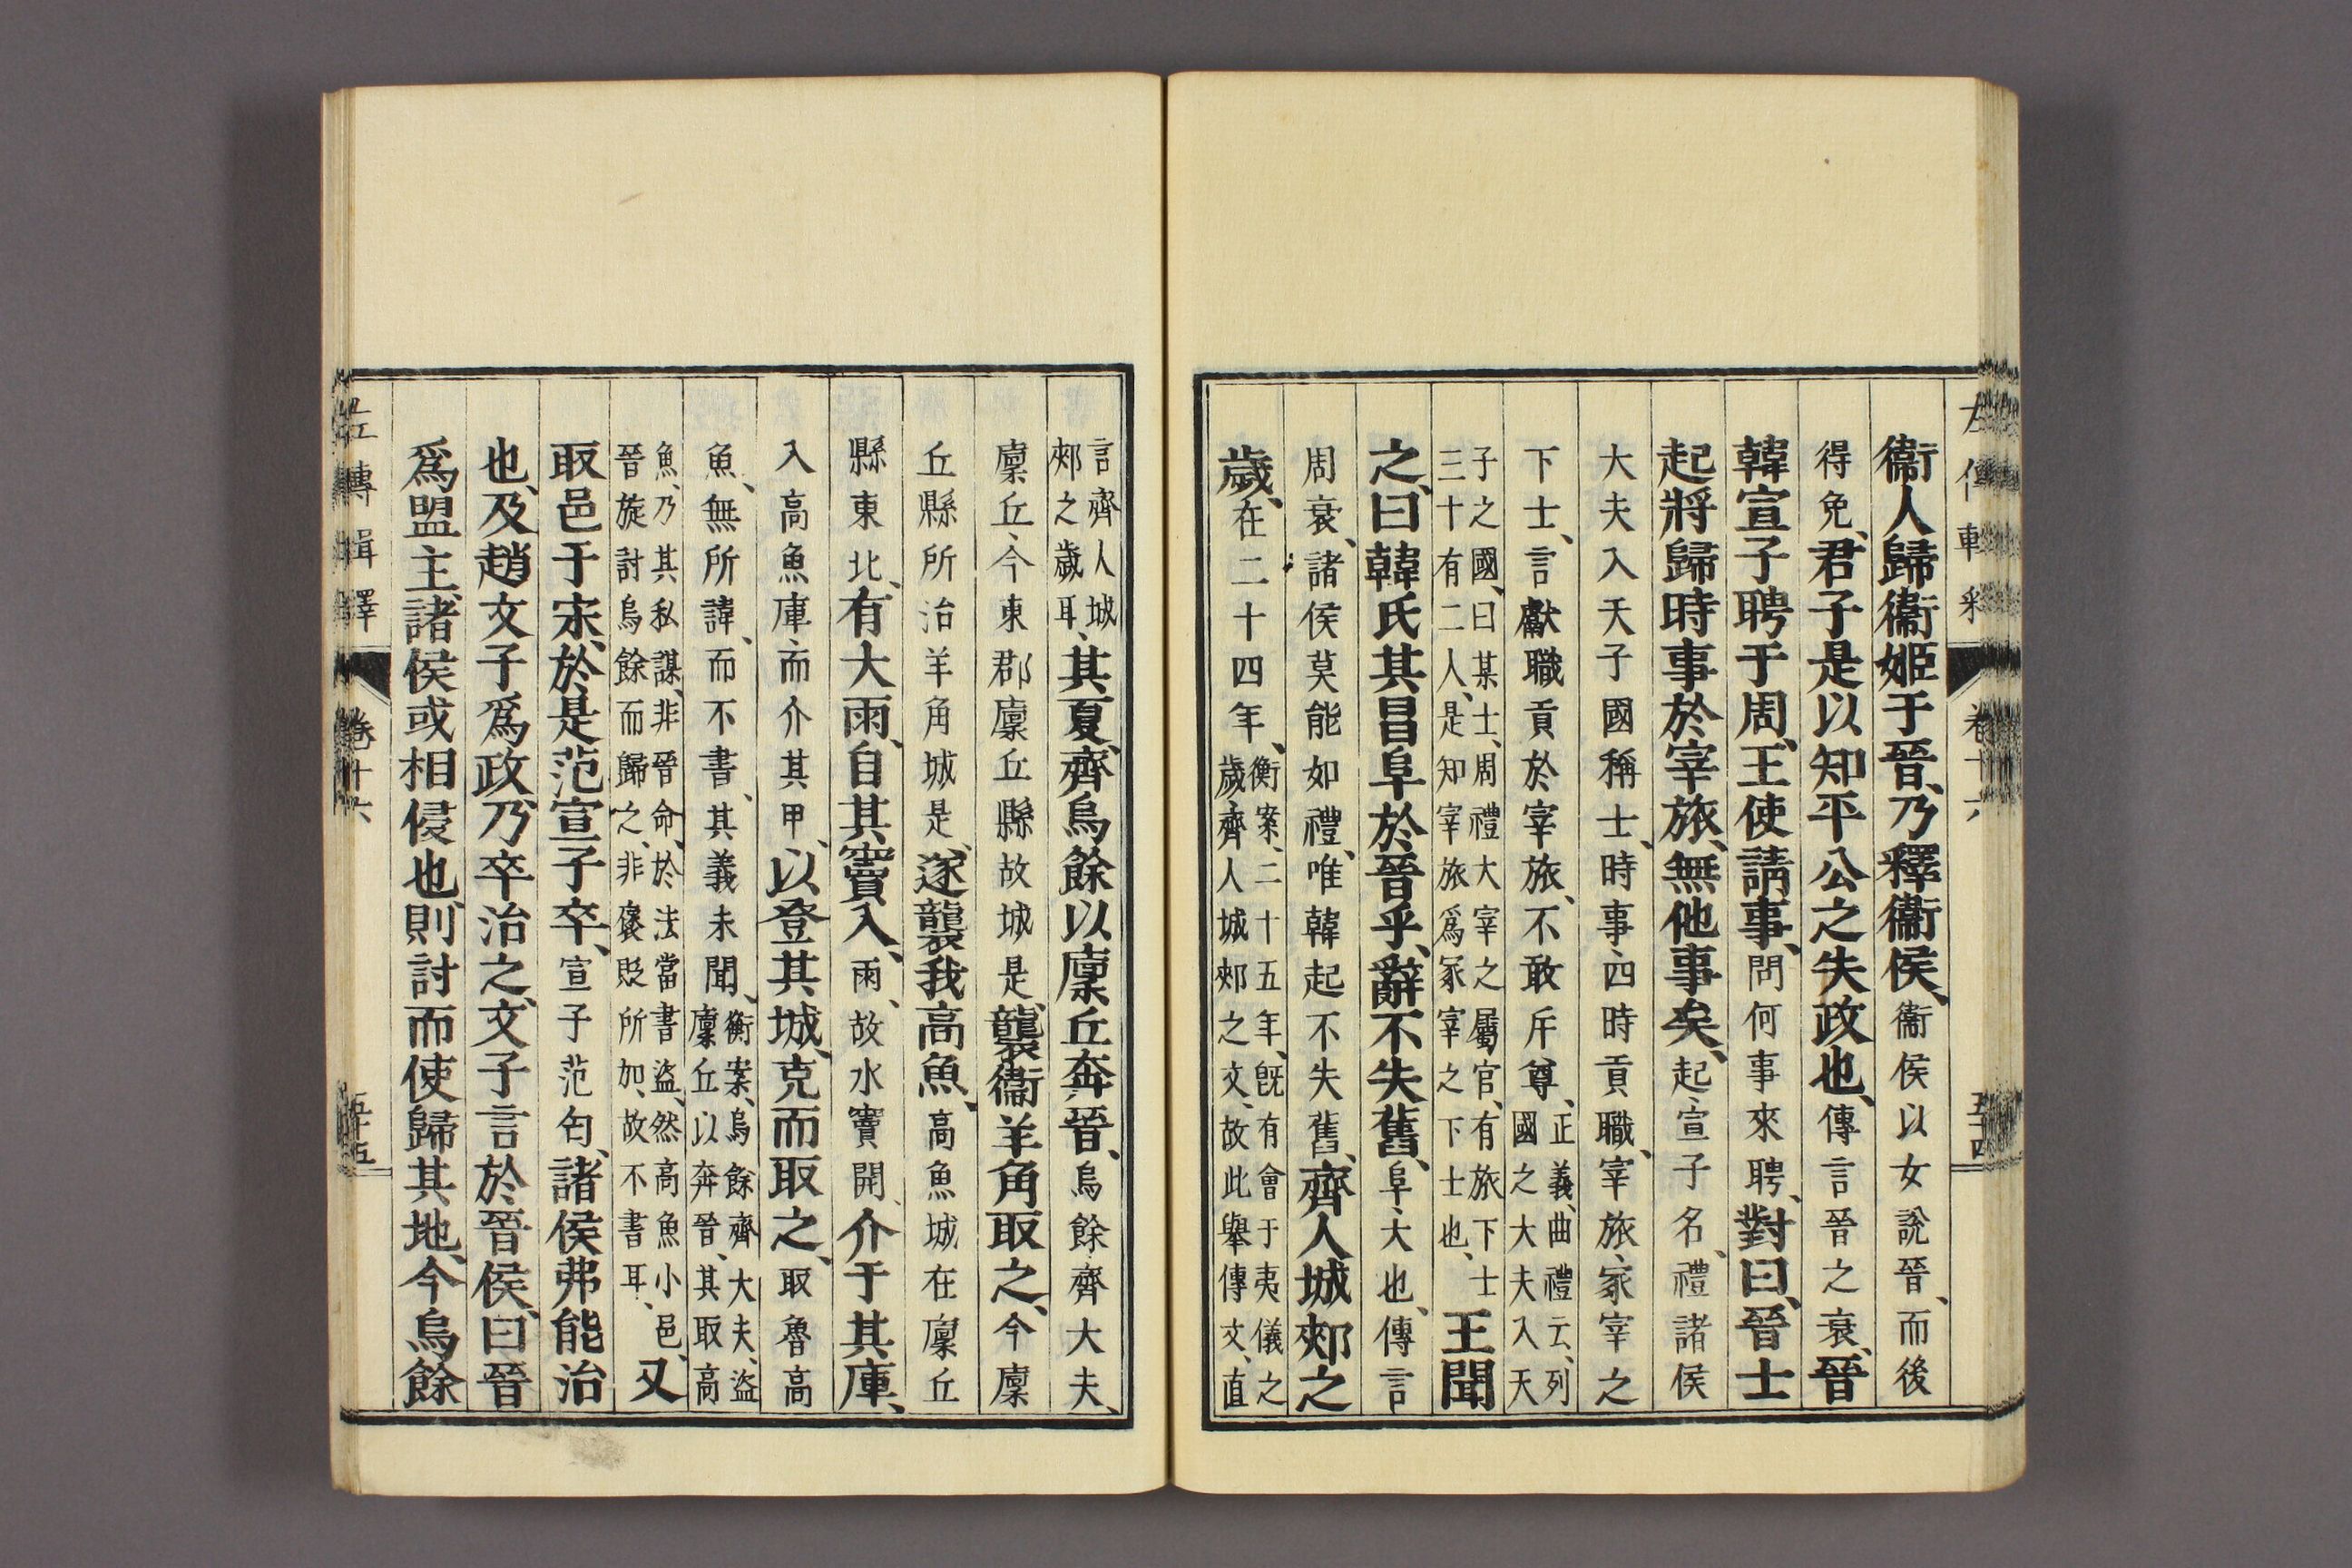 衞人歸衞姬于晉、乃釋衞侯、衞侯以女說晉、而後
得免、君子是以知平公之失政也、傳言晉之衰、晉
韓宣子聘于周、王使請事、問何事來聘、對曰、晉士
起將歸時事於宰旅、無他事矣、起、宣子名、禮諸侯
大夫入天子國稱士、時事、四時貢職、宰旅、冢宰之
下士、言獻職貢於宰旅、不敢斥尊、正義、曲禮云、列
國之大夫入天
子之國、曰某士、周禮大宰之屬官、有旅下士
三十有二人、是知宰旅爲冢宰之下士也、王聞
之、曰韓氏其昌阜於晉乎、辭不失舊、阜、大也、傳言
周衰、諸侯莫能如禮、唯韓起不失舊、齊人城郟之
歲、在二十四年、衡案、二十五年、旣有會于夷儀之
歲齊人城郟之文、故此舉傳文、直
言齊人城
郟之歲耳、其夏、齊烏餘以廩丘奔晉、烏餘、齊大夫、
廩丘、今東郡廩丘縣故城是、襲衞羊角取之、今廩
丘縣所治羊角城是、遂襲我高魚、高魚城在廩丘
縣東北、有大雨、自其竇入、雨、故水竇開、介于其庫、
入高魚庫、而介其甲、以登其城、克而取之、取魯高
魚、無所諱、而不書、其義未聞、衡案、烏餘齊大夫、盜
廩丘以奔晉、其取高
魚、乃其私謀、非晉命、於法當書盜、然高魚小邑、
晉旋討烏餘而歸之、非褒貶所加、故不書耳、又
取邑于宋、於是范宣子卒、宣子范匄、諸侯弗能治
也、及趙文子爲政、乃卒治之、文子言於晉侯、曰晉
爲盟主、諸侯或相侵也、則討而使歸其地、今烏餘
左傳輯釋 卷十六 五十五